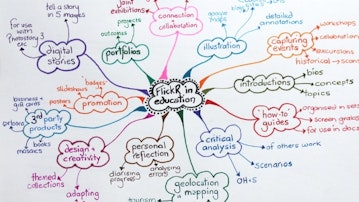 tell a story
in 5 images
for use with
Photostory 3
etc
digital
stories
projects
outcomes
portfolios
joint
exhibitions
connection
collaboration
illustration
detailed
annotations
capturing
events
workshops
excursions
introductions
bios
concepts
topics
slideshows
badges
posters
promotion
flickR in
education
business +
gift cards
3rd party
products
books
mosaics
design +
creativity
themed
collections
adapting
personal
reflection
diarising
progress
analysing
errors
critical
analysis
of others work
scenarios
OH+S
geolocation
mapping
tourism
how-to
guides
organised in sets
screen grabs
for use in